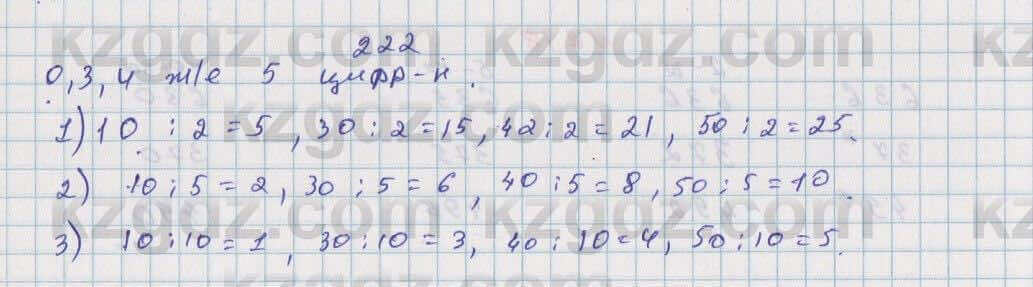 222
0,3,4 ж/е 5 цифр-н.
1) 10 : 2 = 5, 30 : 2 = 15, 42 : 2 = 21, 50 : 2 = 25.
2) 10 : 5 = 2, 30 : 5 = 6, 40 : 5 = 8, 50 : 5 = 10.
3) 10 : 10 = 1, 30 : 10 = 3, 40 : 10 = 4, 50 : 10 = 5.
kzgdz.com kzgdz.com
kzgdz.com kzgdz.com
kzgdz.com kzgdz.com